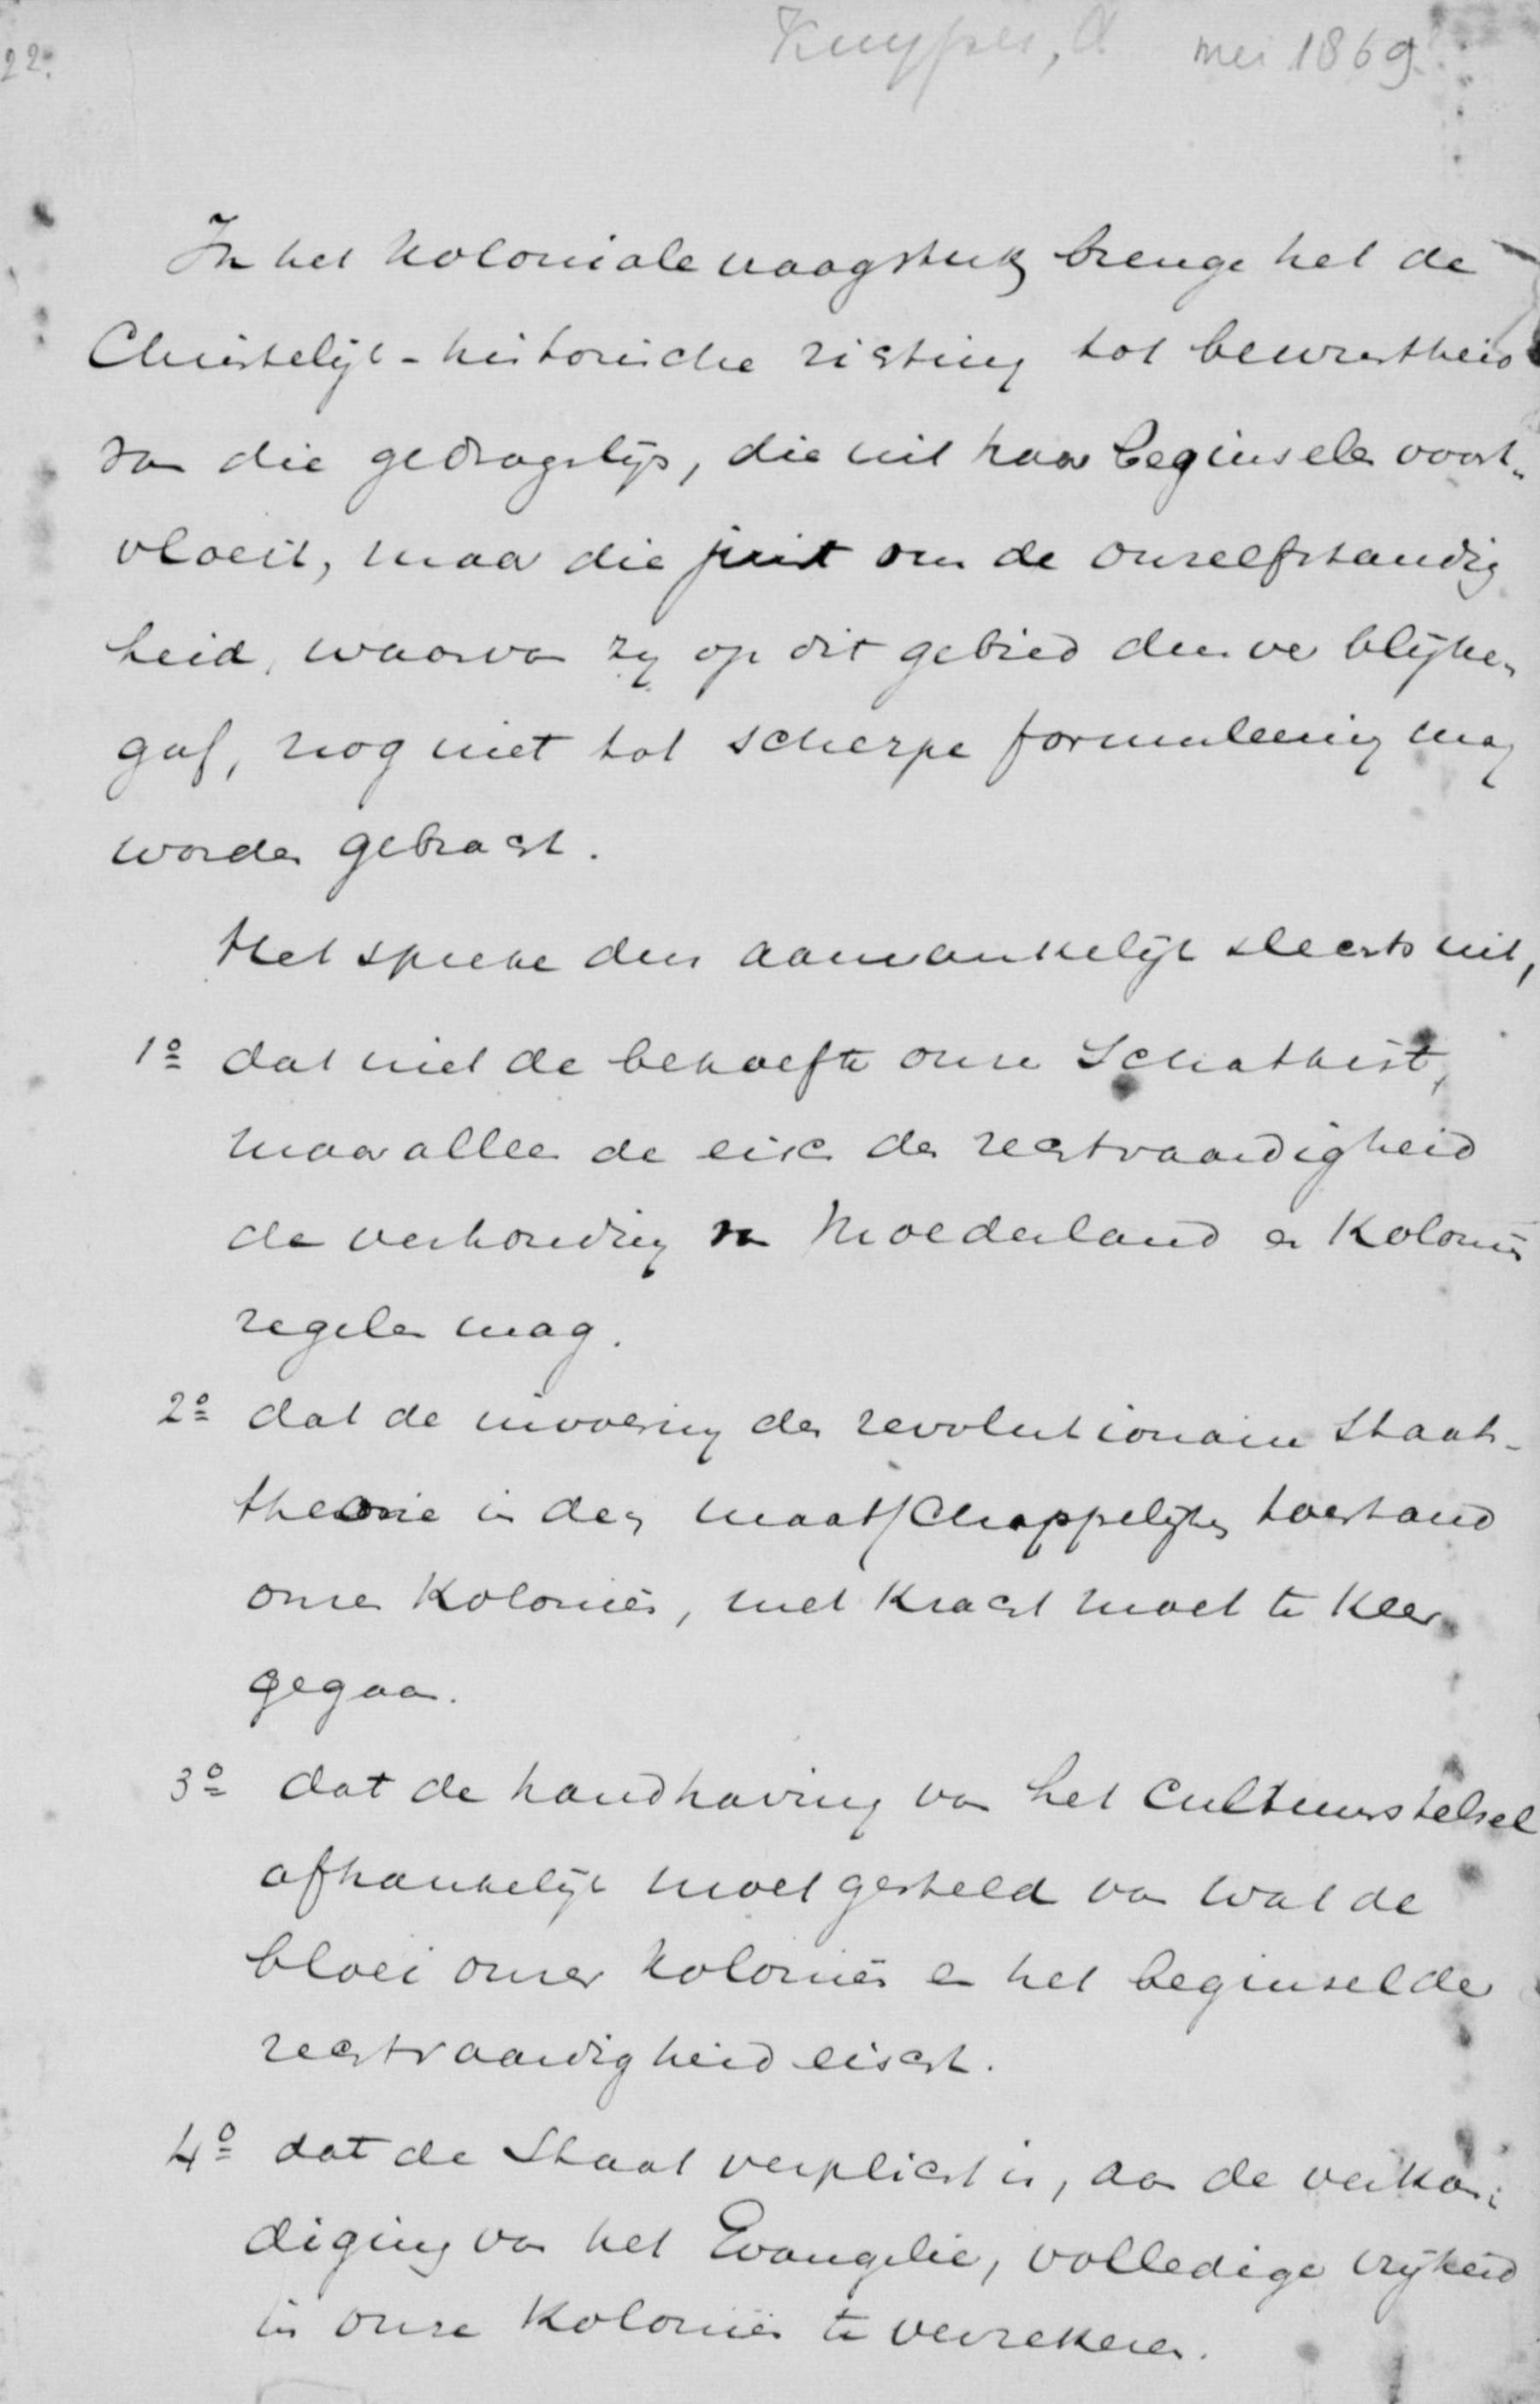 22.
Kuyper, A mei 1869
In het Koloniale vraagstuk brenge het de
Christelijk-historische richting tot bewustheid
van die gedragslijn, die uit haar beginselen voort-
vloeit, maar die juist om de onzelfstandig
heid, waarvan zij op dit gebied dusver blijken
gaf, nog niet tot scherpe formuleering mag
worden gebracht.
Het spreke dus aanvankelijk slechts uit,
1º dat niet de behoefte onzer Schatkist,
maar alleen de eisch der rechtvaardigheid
de verhouding van Moederland en Koloniën
regelen mag.
2º dat de invoering der revolutionaire Staats-
theorie in den maatschappelijken toestand
onzer Koloniën, met kracht moet te keer
gegaan.
3º dat de handhaving van het Cultuurstelsel
afhankelijk moet gesteld van wat de
bloei onzer Koloniën en het beginsel der
rechtvaardigheid eischt.
4º dat de Staat verplicht is, aan de verkon-
diging van het Evangelie, volledige vrijheid
in onze Koloniën te verzekeren.